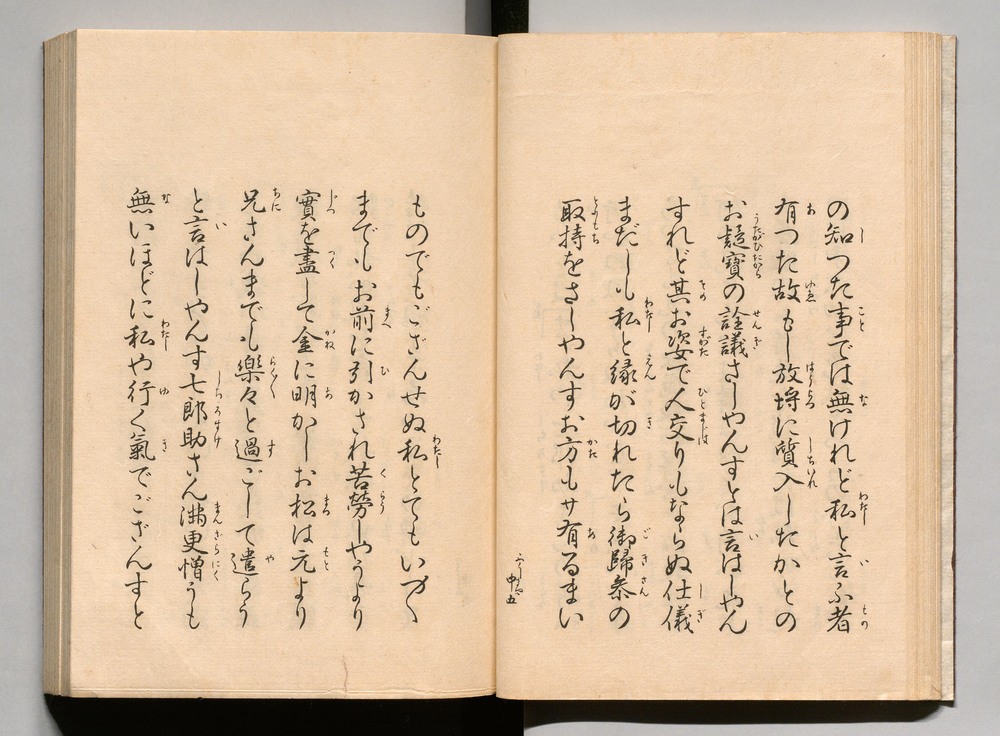 の知つた事では無けれど私と言ふ者
有つた故もし放埒に質入したかとの
お疑寶の詮議さしやんすとは言はしやん
すれど其お姿で人交りもならぬ仕儀
まだしも私と縁が切れたら御歸参の
取持をさしやんすお方もサ有るまい
中五
ものでもござんせぬ私とてもいつ〳〵
までもお前に引かされ苦勞しやうより
實を盡して金に明かしお松は元より
兄さんまでも樂々と過ごして遣らう
と言はしやんす七郎助さん満更憎うも
無いほどに私や行く氣でござんすと